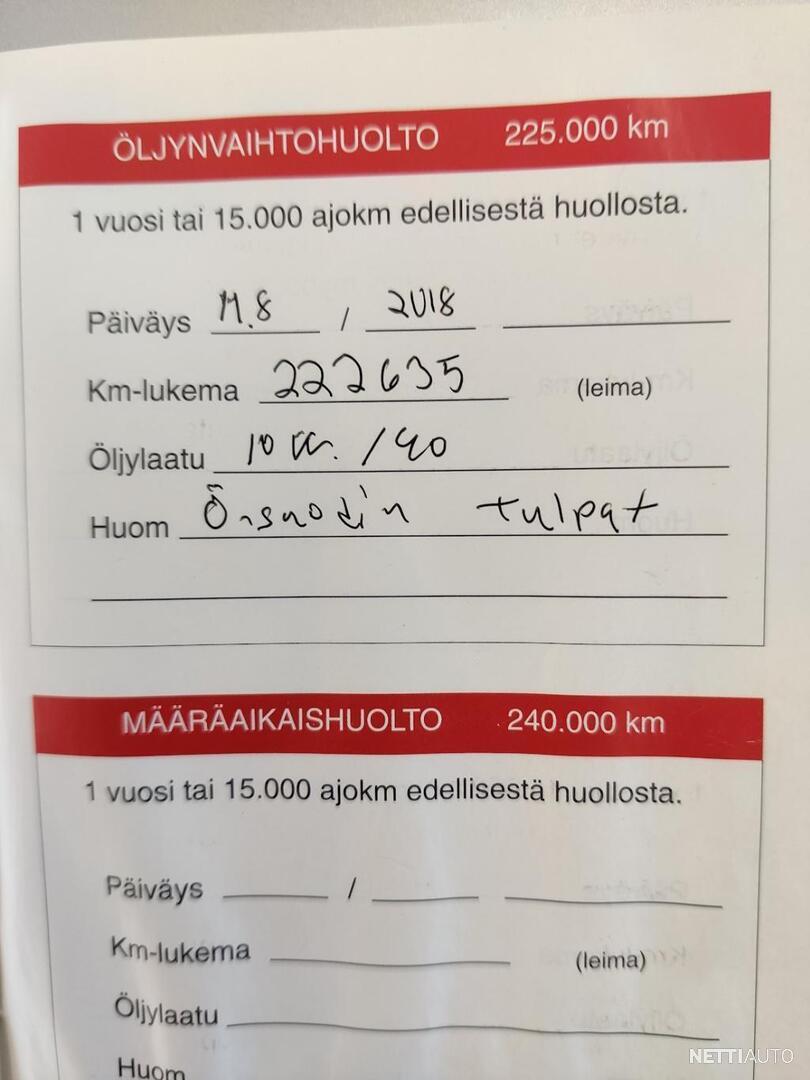 ÖLJYNVAIHTOHUOLTO 225.000 km
1 vuosi tai 15.000 ajokm edellisestä huollosta.
Päiväys 14.8 / 2018
Km-lukema 222635 (leima)
Öljylaatu 10 /40
Huom tulpat
MÄÄRÄAIKAISHUOLTO 240.000 km
1 vuosi tai 15.000 ajokm edellisestä huollosta.
Päiväys /
Km-lukema (leima)
Öljylaatu
Huom
NETTIAUTO